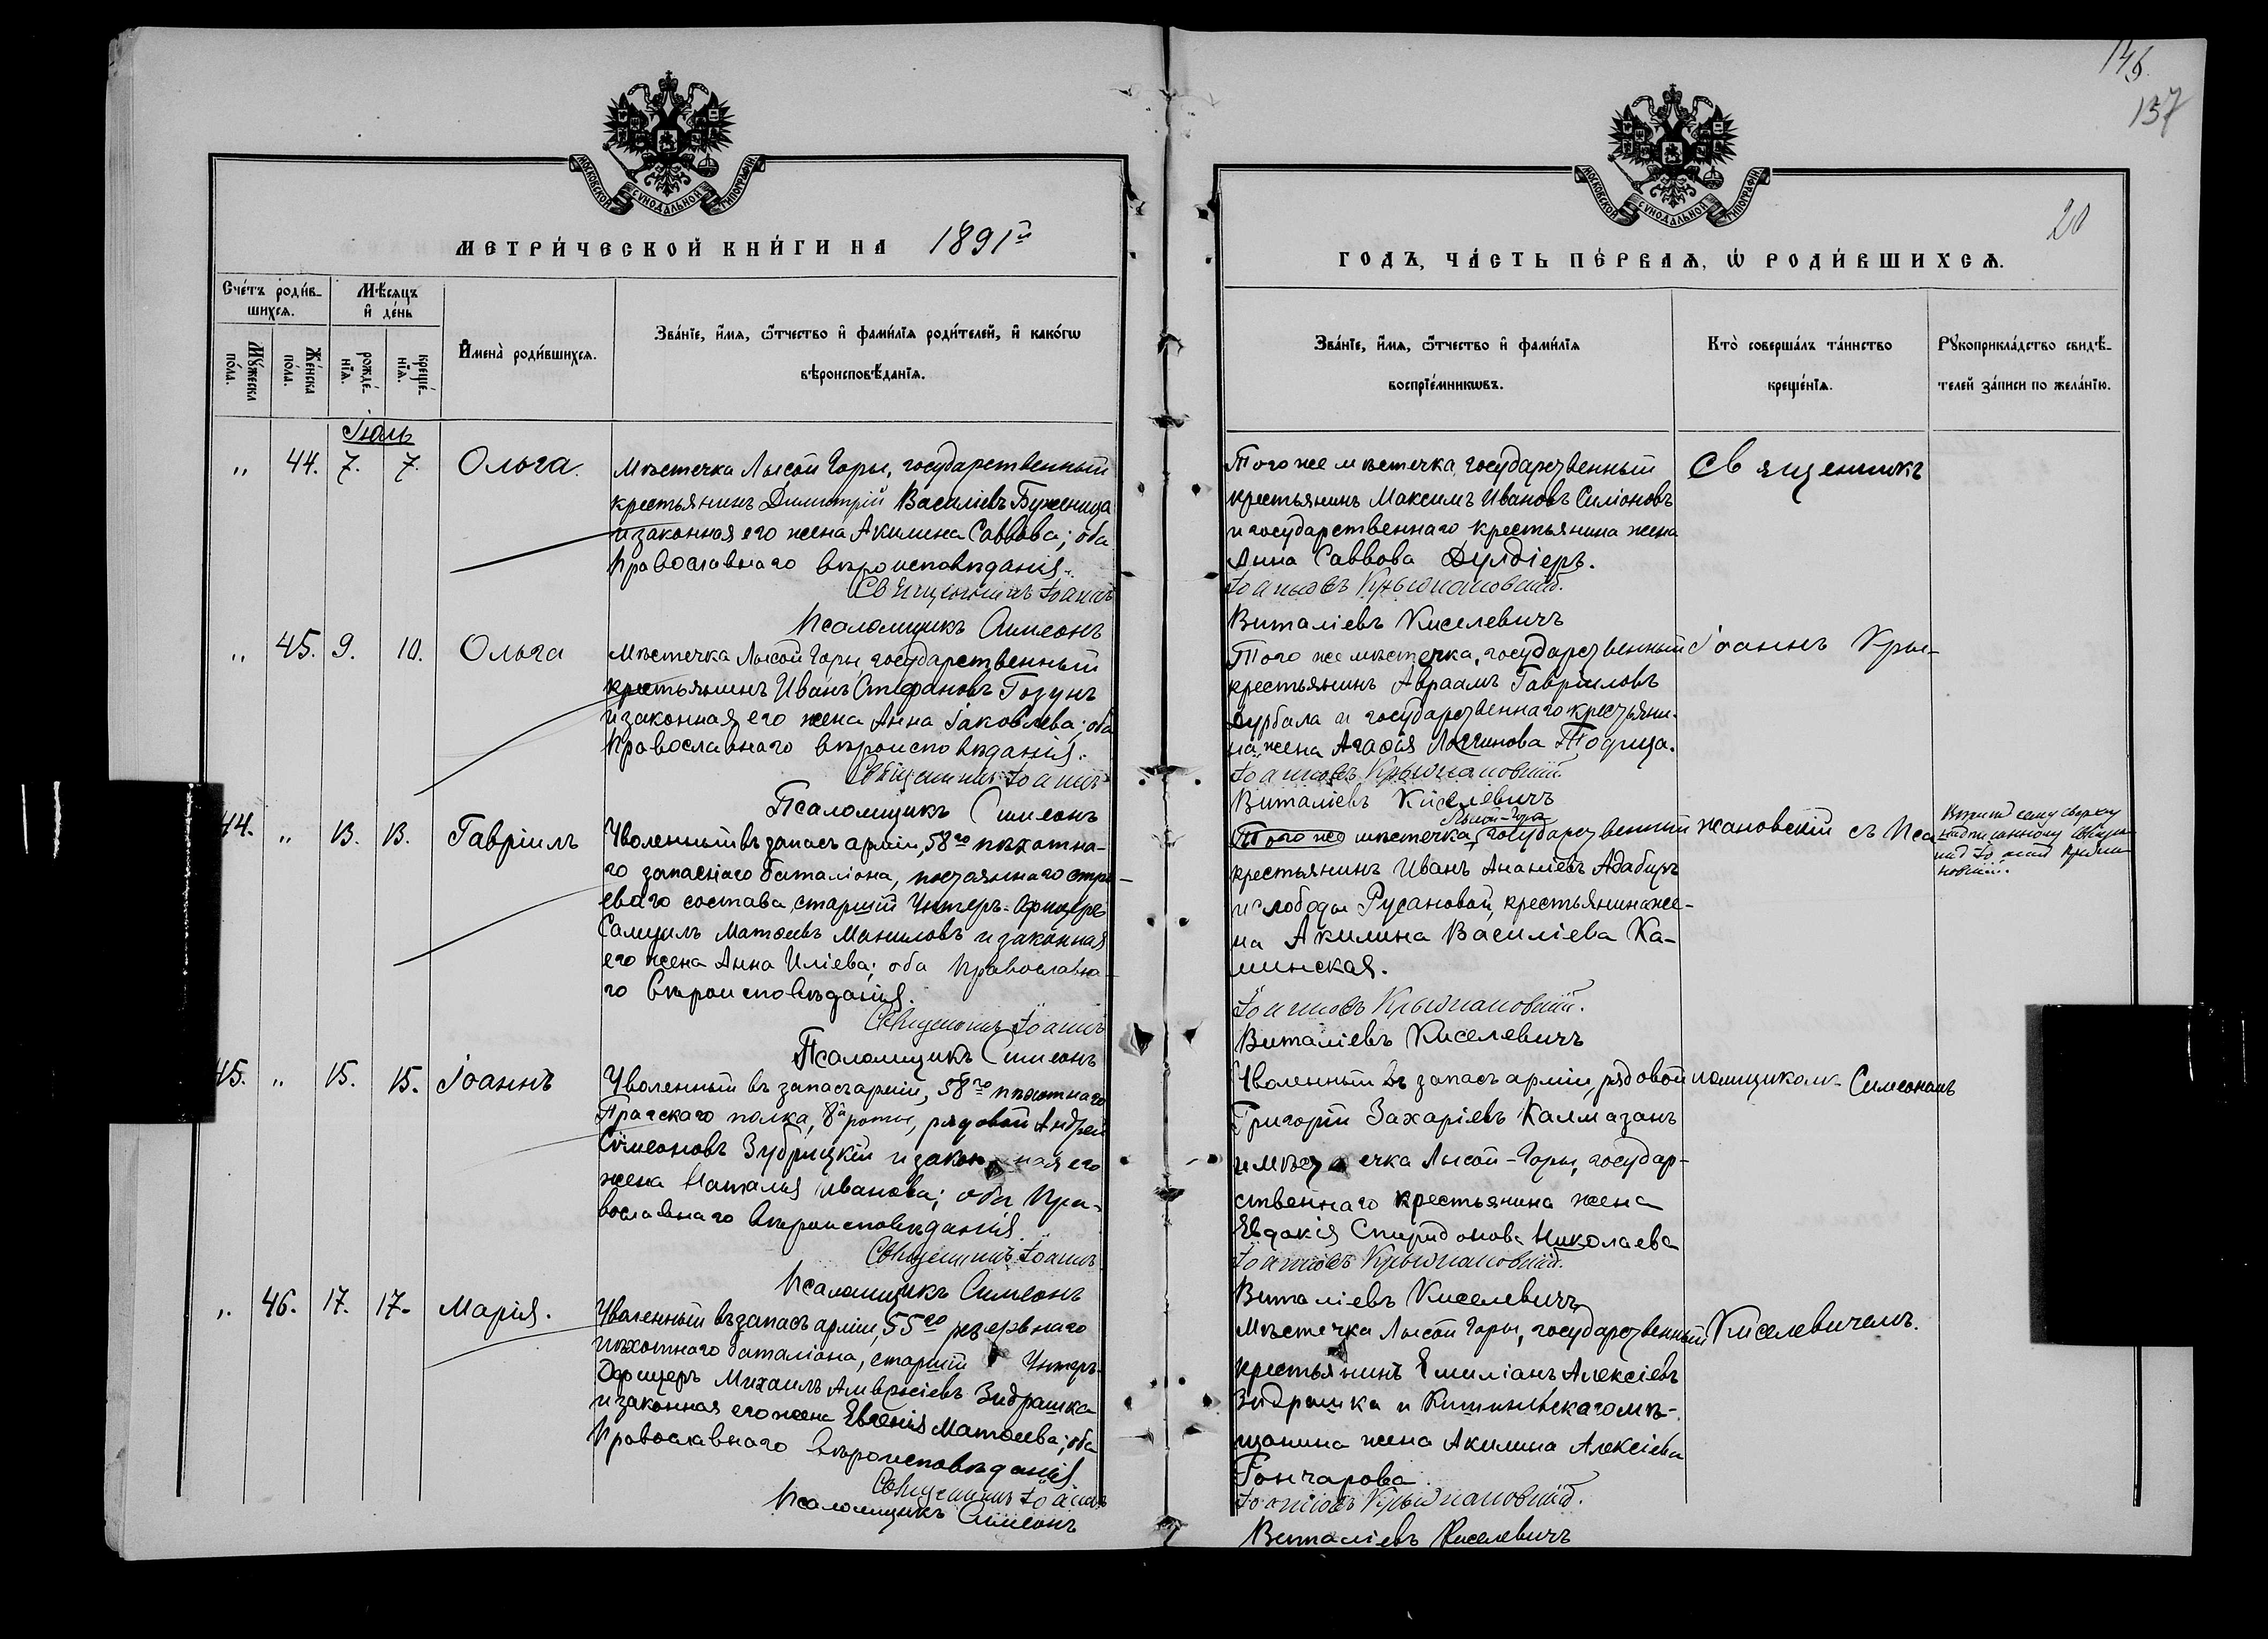 146.
137
МОСКОВСКОЙ СУНОДАЛЬНОЙ ТИПОГРАФІИ
МЕТРИ́ЧЕСКОЙ КНИ́ГИ НА 1891й
Сче́тъ роди́в-
шихсѧ.
Мѣ́сѧцъ
и҆ де́нь
Мꙋ́жеска
по́ла.
Же́нска
по́ла.
рожде́-
нїѧ.
креще́-
нїѧ.
И҆мена̀ роди́вшихсѧ.
Зва́нїе, и҆́мѧ, ѻ҆́тчество и҆ фами́лїѧ роди́телей, и҆ како́гѡ
вѣроисповѣ́данїѧ.
Іюль
„ 44. 7. 7. Ольга.
Мѣстечка Лысой Горы, государственный
крестьянинъ Димитрій Василіевъ Буженица
и законная его жена Акилина Саввова; оба
Православнаго вѣроисповѣданія.
Священникъ Іоаннъ
Псаломщикъ Симеонъ
„ 45. 9. 10. Ольга
Мѣстечка Лысой Горы государственный
крестьянинъ Иванъ Стефановъ Гозунъ
и законная его жена Анна Іаковлева; оба
Православнаго вѣроисповѣданія.
Священникъ Іоаннъ
Псаломщикъ Симеонъ
44. „ 13. 13. Гавріилъ
Уволенный въ запасъ арміи, 58го пѣхотна-
го запаснаго баталіона, постояннаго стро-
еваго состава, старшій Унтеръ-Офицеръ
Самуилъ Матѳеевъ Маниловъ и законная
его жена Анна Иліева; оба Православна-
го вѣроисповѣданія.
Священникъ Іоаннъ
Псаломщикъ Симеонъ
45. „ 15. 15. Іоаннъ
Уволенный въ запасъ арміи, 58го пѣхотнаго
Прагскаго полка, 8й роты, рядовой Андрей
Симеоновъ Зубрицкій и законная его
жена Наталія Иванова; оба Пра-
вославнаго вѣроисповѣданія.
Священникъ Іоаннъ
Псаломщикъ Симеонъ
„ 46. 17. 17. Марія.
Уволенный въ запасъ арміи, 55го резервнаго
пѣхотнаго баталіона, старшій Унтеръ-
Офицеръ Михаилъ Амвросіевъ Зидрашка
и законная его жена Евгенія Матѳеева; оба
Православнаго вѣроисповѣданія.
Священникъ Іоаннъ
Псаломщикъ Симеонъ
МОСКОВСКОЙ СУНОДАЛЬНОЙ ТИПОГРАФІИ
20
ГОДЪ, ЧА́СТЬ ПЕ́РВАѦ, Ѡ҆ РОДИ́ВШИХСѦ.
Зва́нїе, и҆́мѧ, ѻ҆́тчество и҆ фами́лїѧ
воспрїе́мникѡвъ.
Кто̀ соверша́лъ та́инство
креще́нїѧ.
Рꙋкоприкла́дство свидѣ́-
телей за́писи по жела́нїю.
Того же мѣстечка, государственный
крестьянинъ Максимъ Ивановъ Симіоновъ
и государственнаго крестьянина жена
Анна Саввова Дулдіеръ.
Іоанновъ Крыжановскій.
Виталіевъ Киселевичъ
Того же мѣстечка, государственный
крестьянинъ Авраамъ Гавріиловъ
Курбала и государственнаго крестьяни-
на жена Агаѳія Логгинова Тодрица.
Іоанновъ Крыжановскій.
Виталіевъ Киселевичъ
Лысой-Горы
Того же мѣстечка, государственный
крестьянинъ Иванъ Ананіевъ Адабиръ
и слободы Русановой, крестьянина же-
на Акилина Василіева Ка-
минская.
Іоанновъ Крыжановскій.
Виталіевъ Киселевичъ
Уволенный въ запасъ арміи, рядовой
Григорій Захаріевъ Калмазанъ
и мѣстечка Лысой-Горы, государ-
ственнаго крестьянина жена
Евдокія Спиридонова Николаева
Іоанновъ Крыжановскій.
Виталіевъ Киселевичъ
Мѣстечка Лысой Горы, государственный
крестьянинъ Емиліанъ Алексіевъ
Зидрашка и Кишиневскаго мѣ-
щанина жена Акилина Алексіева
Гончарова.
Іоанновъ Крыжановскій.
Виталіевъ Киселевичъ
Священникъ
Іоаннъ Кры-
жановскій съ Пса-
ломщикомъ Симеономъ
Киселевичемъ.